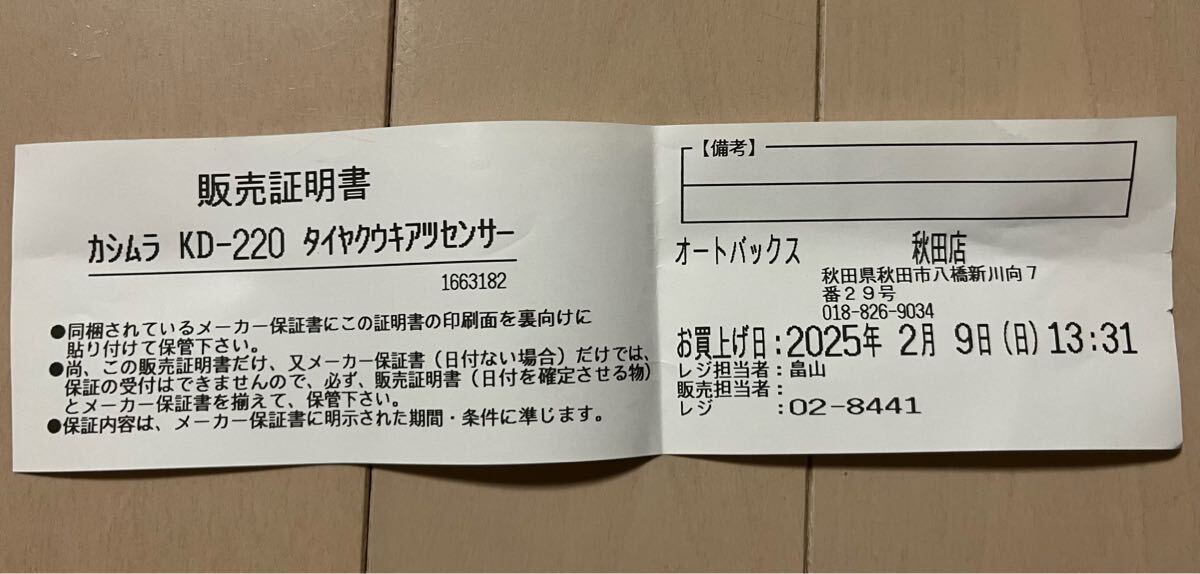 販売証明書
カシムラ KD-220 タイヤクウキアツセンサー
1663182
●同梱されているメーカー保証書にこの証明書の印刷面を裏向けに
貼り付けて保管下さい。
●尚、この販売証明書だけ、又メーカー保証書（日付ない場合）だけでは、
保証の受付はできませんので、必ず、販売証明書（日付を確定させる物）
とメーカー保証書を揃えて、保管下さい。
●保証内容は、メーカー保証書に明示された期間・条件に準じます。
【備考】
オートバックス 秋田店
秋田県秋田市八橋新川向７
番２９号
018-826-9034
お買上げ日：2025年 2月 9日（日）13:31
レジ担当者：畠山
販売担当者：
レジ ：02-8441